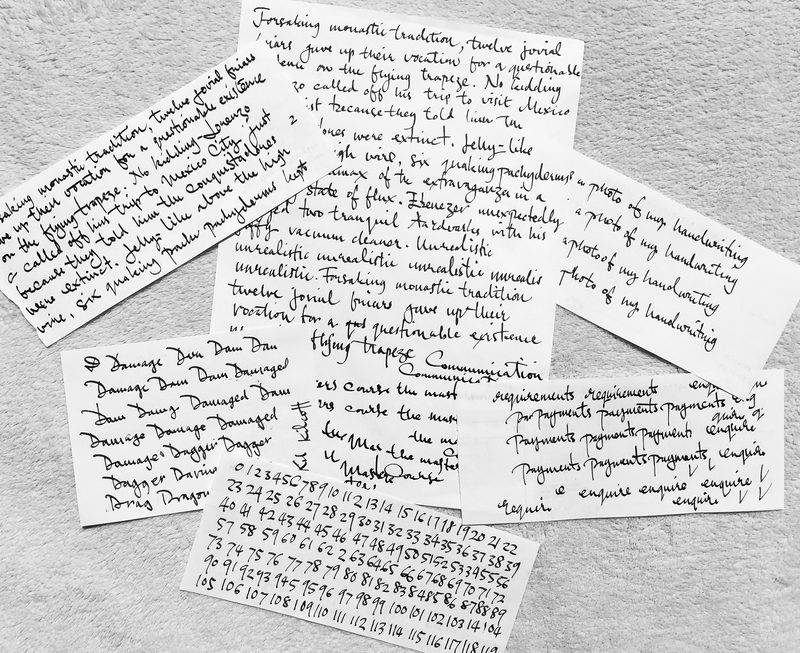 Forsaking monastic tradition, twelve jovial
friars gave up their vocation for a questionable
on the flying trapeze. No kidding
called off his trip to visit Mexico
because they told him the
were extinct. Jelly-like
wire, six quaking pachyderms
of the extravaganza in a
state of flux. Ebenezer unexpectedly
two tranquil aardvarks with his
vacuum cleaner. Unrealistic
unrealistic unrealistic unrealistic unrealis
unrealistic. Forsaking monastic tradition
twelve jovial friars gave up their
vocation for a questionable existence
flying trapeze Communication
Communicat
course the mast
course the mas
the m
the master
Master Course
monastic tradition, twelve jovial friars
up their vocation for a questionable existence
on the flying trapeze. No kidding - Lorenzo
called off his trip to Mexico City just
because they told him the conquistadores
were extinct. Jelly-like above the high
wire, six quaking pachyderms kept
2
a photo of my handwriting
a photo of my handwriting
a photo of my handwriting
photo of my handwriting
D Damage Dam Dam Dam
Damage Dam Dam Damaged
Dam Damg Damaged Dam
Damage Damage Damaged
Damage Dagger Dagger
Dagger
Drag Dragon
requirements requirement enquire
payments payments payments
payments payments payments enquire
payments payments payments enquire
requir e enquire enquire enquire
enquire
0 1 2 3 4 5 6 7 8 9 10 11 12 13 14 15 16 17 18 19 20 21 22
23 24 25 26 27 28 29 30 31 32 33 34 35 36 37 38 39
40 41 42 43 44 45 46 47 48 49 50 51 52 53 54 55 56
57 58 59 60 61 62 63 64 65 66 67 68 69 70 71 72
73 74 75 76 77 78 79 80 81 82 83 84 85 86 87 88 89
90 91 92 93 94 5 95 96 97 98 99 100 101 102 103 104
105 106 107 108 109 110 111 112 113 114 115 116 117 118 119